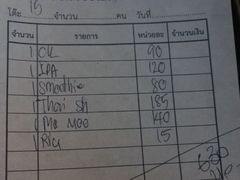 โต๊ะ 15 จำนวน คน วันที่
จำนวน รายการ หน่วยละ จำนวนเงิน
1 CK 90
1 IPA 120
1 Smoothie 80
1 Thai Sh 185
1 Ma Mee 40
1 Rice 15
630